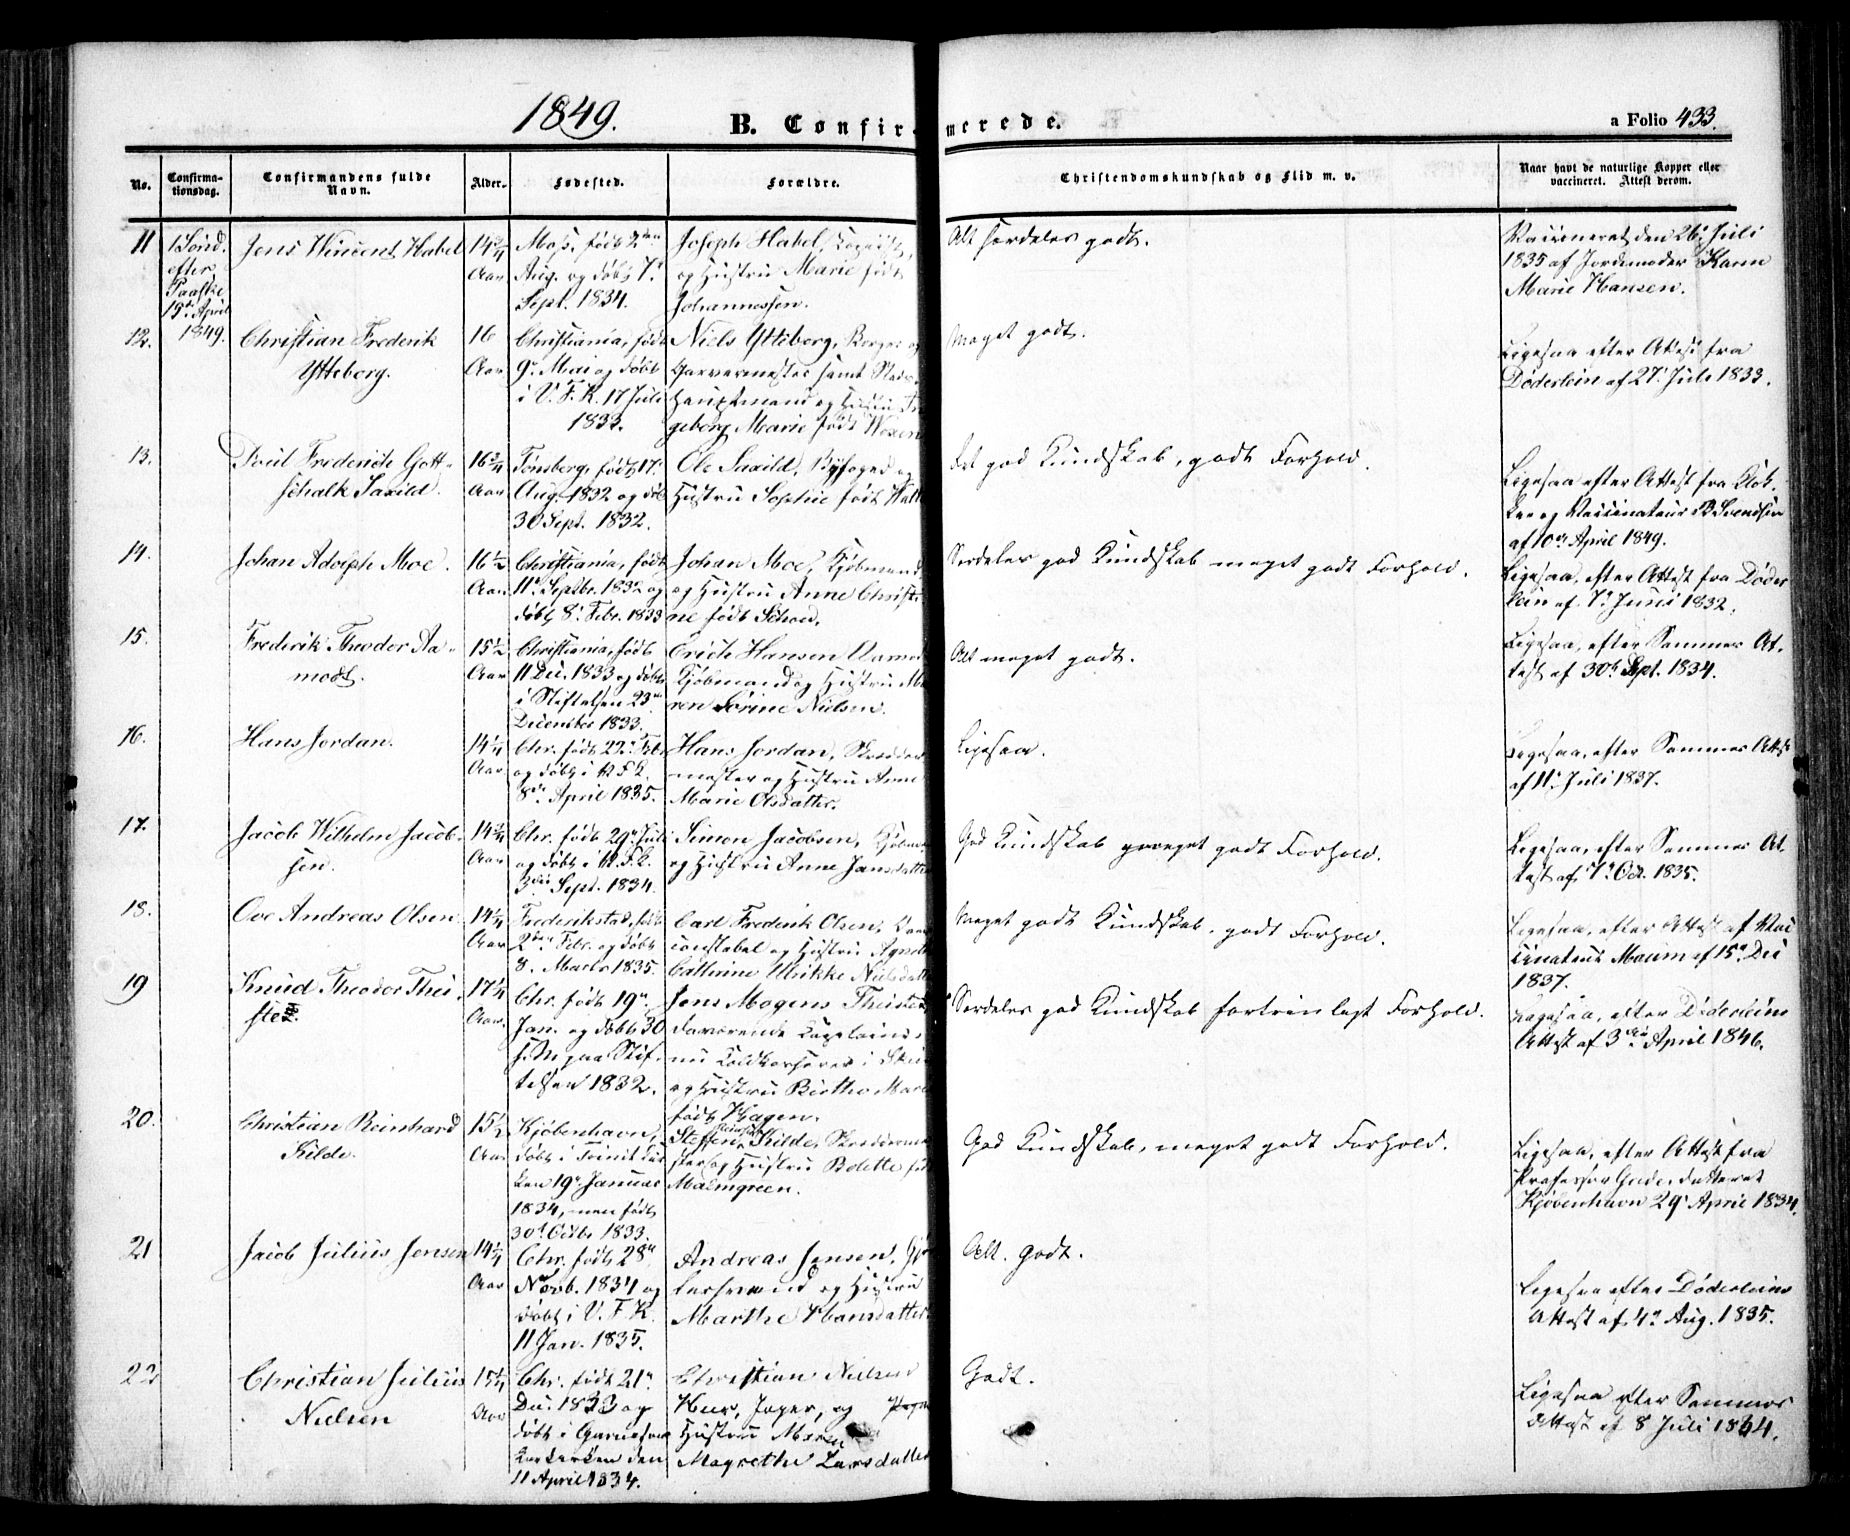 1849.
B. Confirmerede.
a Folio 433.
No.
Confirma-
tionsdag.
Confirmandens fulde
Navn.
Alder.
Fødested.
Forældre.
Christendomskundskab og Flid m. v.
Naar havt de naturlige Kopper eller
vaccineret. Attest derom.
11
1 Sønd.
efter
Paaske
15de April
1849.
Jens Wincent Habel
14 3/4
Aar
Moss, født 2den
Aug. og døbt 7de
Sept. 1834.
Joseph Habel,
og Hustru Marie født
Johannessen.
Alt særdeles godt.
Vaccineret den 26de Juli
1835 af Jordemoder Karen
Marie Hansen.
12.
Christian Frederik
Ytteborg.
16
Aar
Christiania, født
9de Mai og døbt
i V. F. K. 17 Juli
1833.
Niels Ytteborg, Borger og
Garvermester samt Stads-
hauptmand og Hustru In
geborg Marie født
Meget godt.
Ligesaa efter Attest fra
Døderlein af 27de Juli 1833.
13.
Poul Frederich Gott-
schalk Saxild.
16 3/4
Aar
Tønsberg, født 17de
Aug. 1832 og døbt
30 Sept. 1832.
Ole Saxild, Byfoged og
Hustru Sophie født
god Kundskab, godt Forhold.
Ligesaa efter Attest fra Klok-
ker og Vaccinateur B Svendsen
af 10de April 1849.
14.
Johan Adolph Moe.
16 1/2
Aar
Christiania, født
11te Septbr. 1832 og
døbt 8de Febr. 1833
Johan Moe, Kjøbmand
og Hustru Anne Christi
ne født Schou.
Særdeles god Kundskab meget godt Forhold.
Ligesaa, efter Attest fra Døder
lein af 7de Juni 1832.
15.
Frederik Theodor Aa-
modt.
15 1/2
Aar
Christiania, født
11 Dec. 1833 og døbt
i Stiftelsen 23de
December 1833.
Erich Hansen Aamodt
Kjøbmand og Hustru Ma
ren Sørine Nielsen.
Alt meget godt.
Ligesaa, efter Sammes At-
test af 30te Sept. 1834.
16.
Hans Jordan.
14 1/4
Aar
Chr. født 22de Feb
og døbt i V. F. K.
8de April 1835.
Hans Jordan, Skrædder
mester og Hustru Anne
Marie Olsdatter.
Ligesaa.
Ligesaa, efter Sammes Attest
af 11te Juli 1837.
17.
Jacob Wilhelm Jacob-
sen.
14 3/4
Aar
Chr. født 29de Juli
og døbt i V. F. K.
3die Sept. 1834.
Simon Jacobsen,
og Hustru Anne Jansdatter
God Kundskab meget godt Forhold.
Ligesaa, efter Sammes At-
test af 7de Oct. 1835.
18.
Ove Andreas Olsen
14 1/4
Aar
Frederikstad, født
2den Febr. og døbt
8. Marts 1835.
Carl Frederik Olsen,
constabel og Hustru Agnethe
Cathrine Ulrikke Nielsdatter
Meget godt Kundskab, godt Forhold.
Ligesaa, efter Attest af Vac
cinateur Maum af 15de Dec
1837.
19
Knud Theodor Thei-
ste.
17 1/4
Aar
Chr. født 19de
Jan. og døbt 30
s. M. paa Stif-
telsen 1832.
Jens Mogens Theiste
forværende
nu
og Hustru Birthe Marie
født Hagen.
Særdeles god Kundskab fortrinligt Forhold.
Ligesaa, efter Døderleins
Attest af 3die April 1846.
20.
Christian Reinhard
Kilde.
15 1/2
Aar
Kjøbenhavn,
døbt i Trinit. Kir
ken 19de Januar
1834, men født
30te Octbr 1833.
Steffen Kilde, Skrædderme
ster og Hustru Bolette født
Malmgreen.
God Kundskab, meget godt Forhold.
Ligesaa, efter Attest fra
Professor Gade, dateret
Kjøbenhavn 29de April 1834.
21
Jacob Julius Jensen
14 1/4
Aar
Chr. født 28de
Novb. 1834 og
døbt i V. F. K.
11 Jan. 1835.
Andreas Jensen,
og Hustru
Marthe Hansdatter.
Alt godt.
Ligesaa efter Døderleins
Attest af 4de Aug. 1835.
22
Christian Julius
Nielsen
15 1/4
Aar
Chr. født 21de
Dec. 1833 og
døbt i Garnisons
kirken den
11 April 1834.
Christian Nielsen
Jæger, og
Hustru Maren
Magrethe Larsdatter
Godt.
Ligesaa efter Sammes
Attest af 8 Juli 1834.